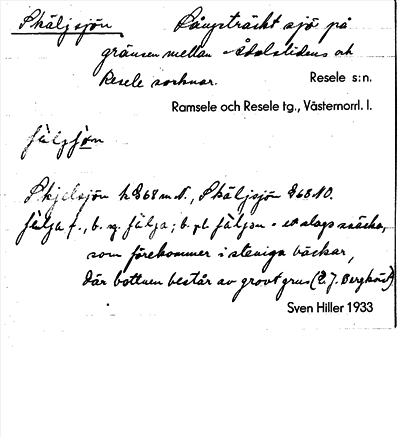 Skäljsjön Långsträckt sjö på
gränsen mellan Ådalslidens och
Resele socknar. Resele s:n.
Ramsele och Resele tg., Västernorrl. l.
Skjelsjön k 868 m.N., Skäljsjön 868 NO.
f., b. sg. ; b. pl. - ett slags snäcka,
som förekommer i steniga bäckar,
där bottnen består av grovt grus (E. J. Bergkvist)
Sven Hiller 1933